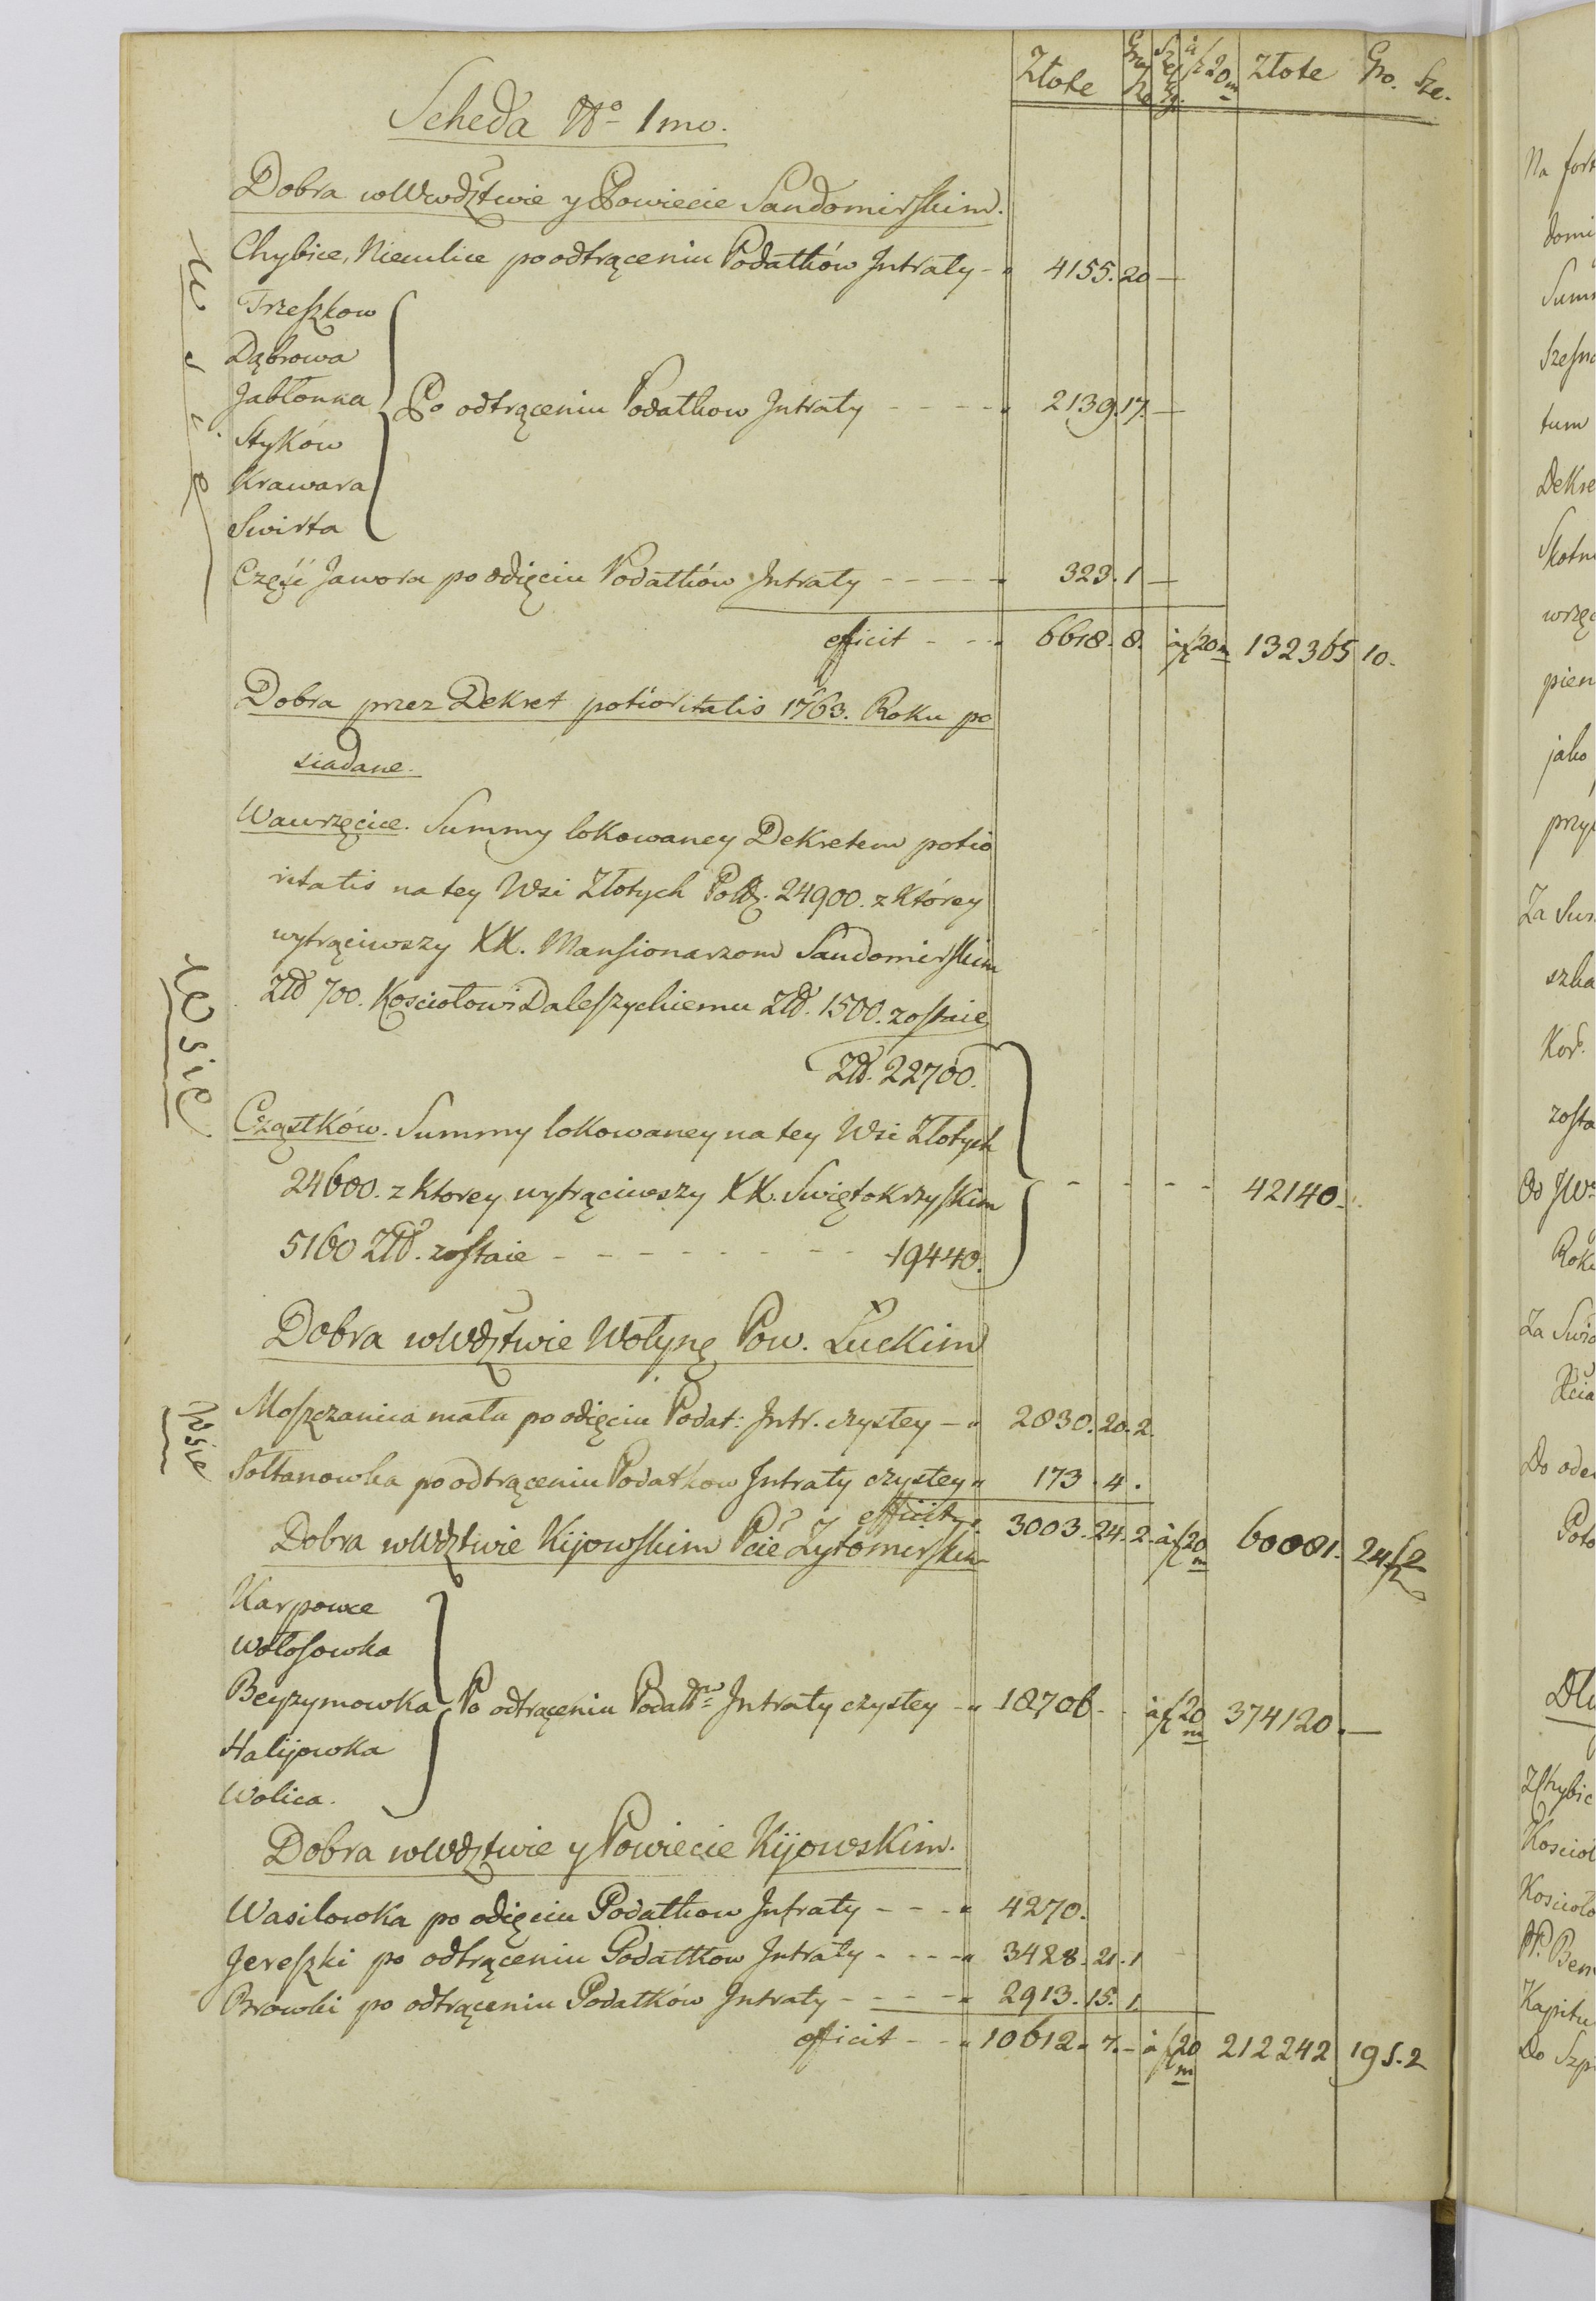 Złote Gro sze Szel gi à p 20 m Złote Gro. Sze.
Scheda No 1mo.
Dobra w Wwdztwie y Powiecie Sandomirskim.
Chybice, Niemlice po odtrąceniu Podatków Jntraty - " 4155. 20 —
Trzeszkow
Dąbrowa
Jabłonna
Styków
Krawara
Swirta
Po odtrąceniu Podatkow Jntraty - - - - " 2139. 17. —
Część Jawora po odięciu Podatków Jntraty - - - - " 323. 1 —
efficit - - - " 6618. 8. à p 20 m 132365 10.
Wsie
Dobra przez Dekret potioritatis 1763. Roku po
siadane.
Wawrzęcice. Summy lokowaney Dekretem potio
ritatis na tey Wsi Złotych Pol. 24900. z Którey
wytrąciwszy XX. Mansionarzom Sandomirskim
Złł 700. Kosciołowi Daleszyckiemu Złł. 1500. zostaie
Złł. 22700.
Cząstków. Summy lokowaney na tey Wsi Złotych
24600. z ktorey wytrąciwszy XX. Swiętokrzyskim
5160 Złł. zostaie - - - - - - - - 19440.
- - - - 42140.
Wsie
Dobra w Wdztwie Wołynę Pow. Łuckim
Moszczanica mała po odięciu Podat: Jntr. czystey - " 2830. 20. 2.
Sołtanowka po odtrąceniu Podatkow Jntraty czystey " 173. 4.
efficit " 3003. 24. 2. à p 20 m 60081. 24 p 2
Wsie
Dobra w Wdztwie Kijowskim Pcie Zytomirskim
Karpowce
Wołosowka
Beyzymowka
Halijowka
Wolica.
Po odtrąceniu Podatków Jntraty czystey - " 18706. - à p 20 m 374120. —
Dobra w Wdztwie y Powiecie Kijowskim.
Wasilowka po odięciu Podatkow Jntraty - - - " 4270.
Jereszki po odtrąceniu Podatkow Jntraty - - - - " 3428. 21. 1
Browki po odtrąceniu Podatków Jntraty - - - - " 2913. 15. 1.
efficit - - " 10612. 7. - à p 20 m 212242 19 s. 2